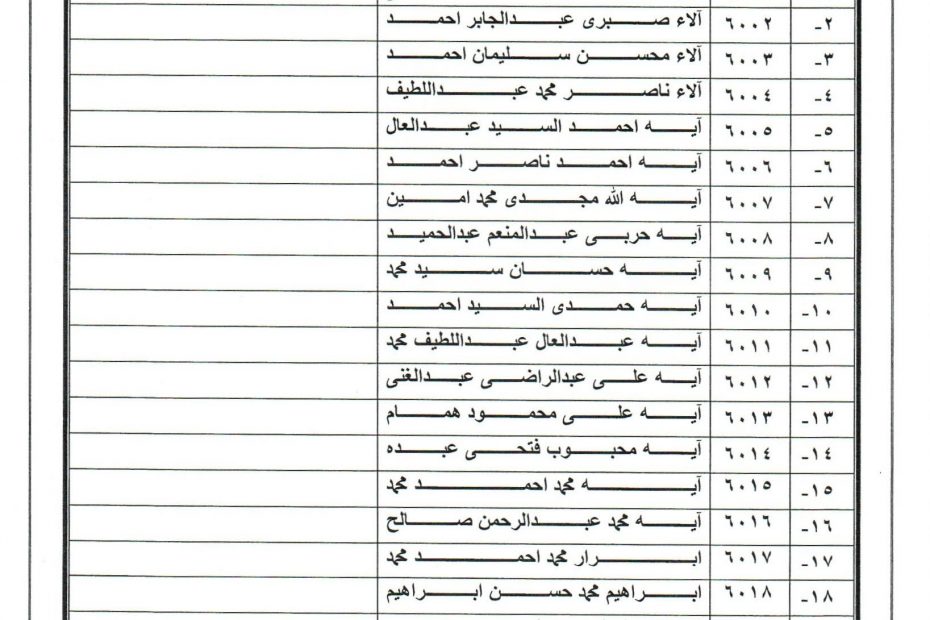 ٢- ٦٠٠٢ آلاء صبرى عبدالجابر احمد
٣- ٦٠٠٣ آلاء محسن سليمان احمد
٤- ٦٠٠٤ آلاء ناصر محمد عبداللطيف
٥- ٦٠٠٥ آيه احمد السيد عبدالعال
٦- ٦٠٠٦ آيه احمد ناصر احمد
٧- ٦٠٠٧ آيه الله مجدى محمد امين
٨- ٦٠٠٨ آيه حربى عبدالمنعم عبدالحميد
٩- ٦٠٠٩ آيه حسان سيد محمد
١٠- ٦٠١٠ آيه حمدى السيد احمد
١١- ٦٠١١ آيه عبدالعال عبداللطيف محمد
١٢- ٦٠١٢ آيه على عبدالراضى عبدالغنى
١٣- ٦٠١٣ آيه على محمود همام
١٤- ٦٠١٤ آيه محبوب فتحى عبده
١٥- ٦٠١٥ آيه محمد احمد محمد
١٦- ٦٠١٦ آيه محمد عبدالرحمن صالح
١٧- ٦٠١٧ ابرار محمد احمد محمد
١٨- ٦٠١٨ ابراهيم محمد حسن ابراهيم